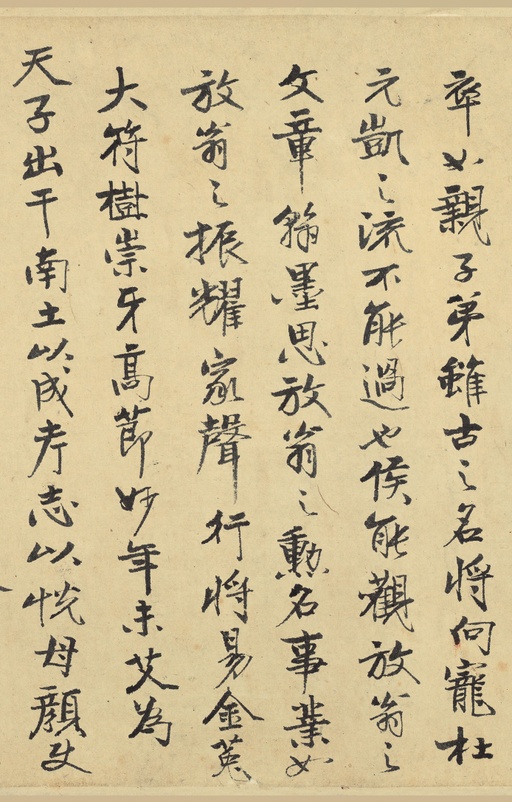 卒如親子弟雖古之名將何寵杜
元凱之流不能過也侯能觀放翁之
文章翰墨思放翁之勳名事業如
放翁之振耀家聲行將易金菟
大符樹崇牙高節妙年未艾為
天子出干南土以成考志以悅母顏史